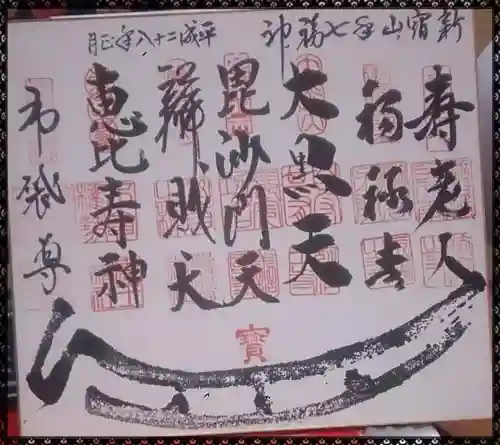 新宿山手七福神
平成二十八年正月
寿老人
福禄寿
大黒天
毘沙門天
辨財天
恵比寿神
布袋尊
寳